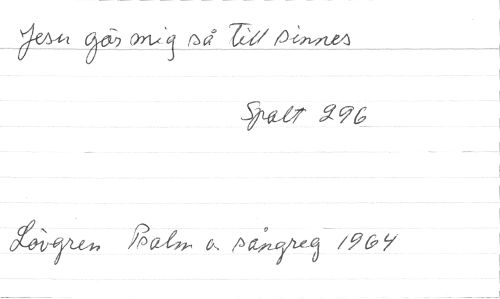 Jesu gör mig så till sinnes
Spalt 296
Lövgren Psalm o. sångreg 1964